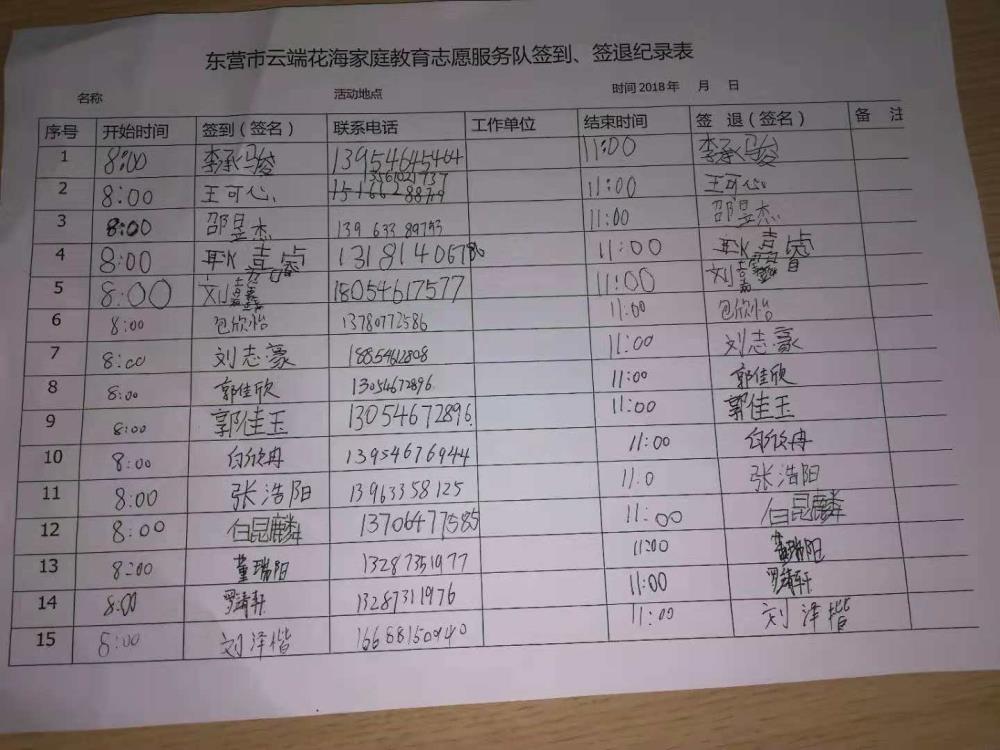 东营市云端花海家庭教育志愿服务队签到、签退纪录表
名称 活动地点 时间 2018 年 月 日
序号 开始时间 签到（签名） 联系电话 工作单位 结束时间 签 退（签名） 备 注
1 8:00 李承骏 13954645464 11:00 李承骏
2 8:00 王可心 11:00 王可心
3 8:00 邵昱杰 139 633 89793 11:00 邵昱杰
4 8:00 13181406786 11:00
5 8:00 刘 18054617577 11:00 刘
6 8:00 包欣怡 13780772586 11:00 包欣怡
7 8:00 刘志豪 11:00 刘志豪
8 8:00 郭佳欣 13054672896 11:00 郭佳欣
9 8:00 郭佳玉 13054672896 11:00 郭佳玉
10 8:00 白欣冉 13954676944 11:00 白欣冉
11 8:00 张浩阳 13963358125 11:0 张浩阳
12 8:00 白昆麟 13706477585 11:00 白昆麟
13 8:00 董瑞阳 13287351977 1100 董瑞阳
14 8:00 13287311976 11:00
15 8:00 刘泽楷 11:00 刘泽楷